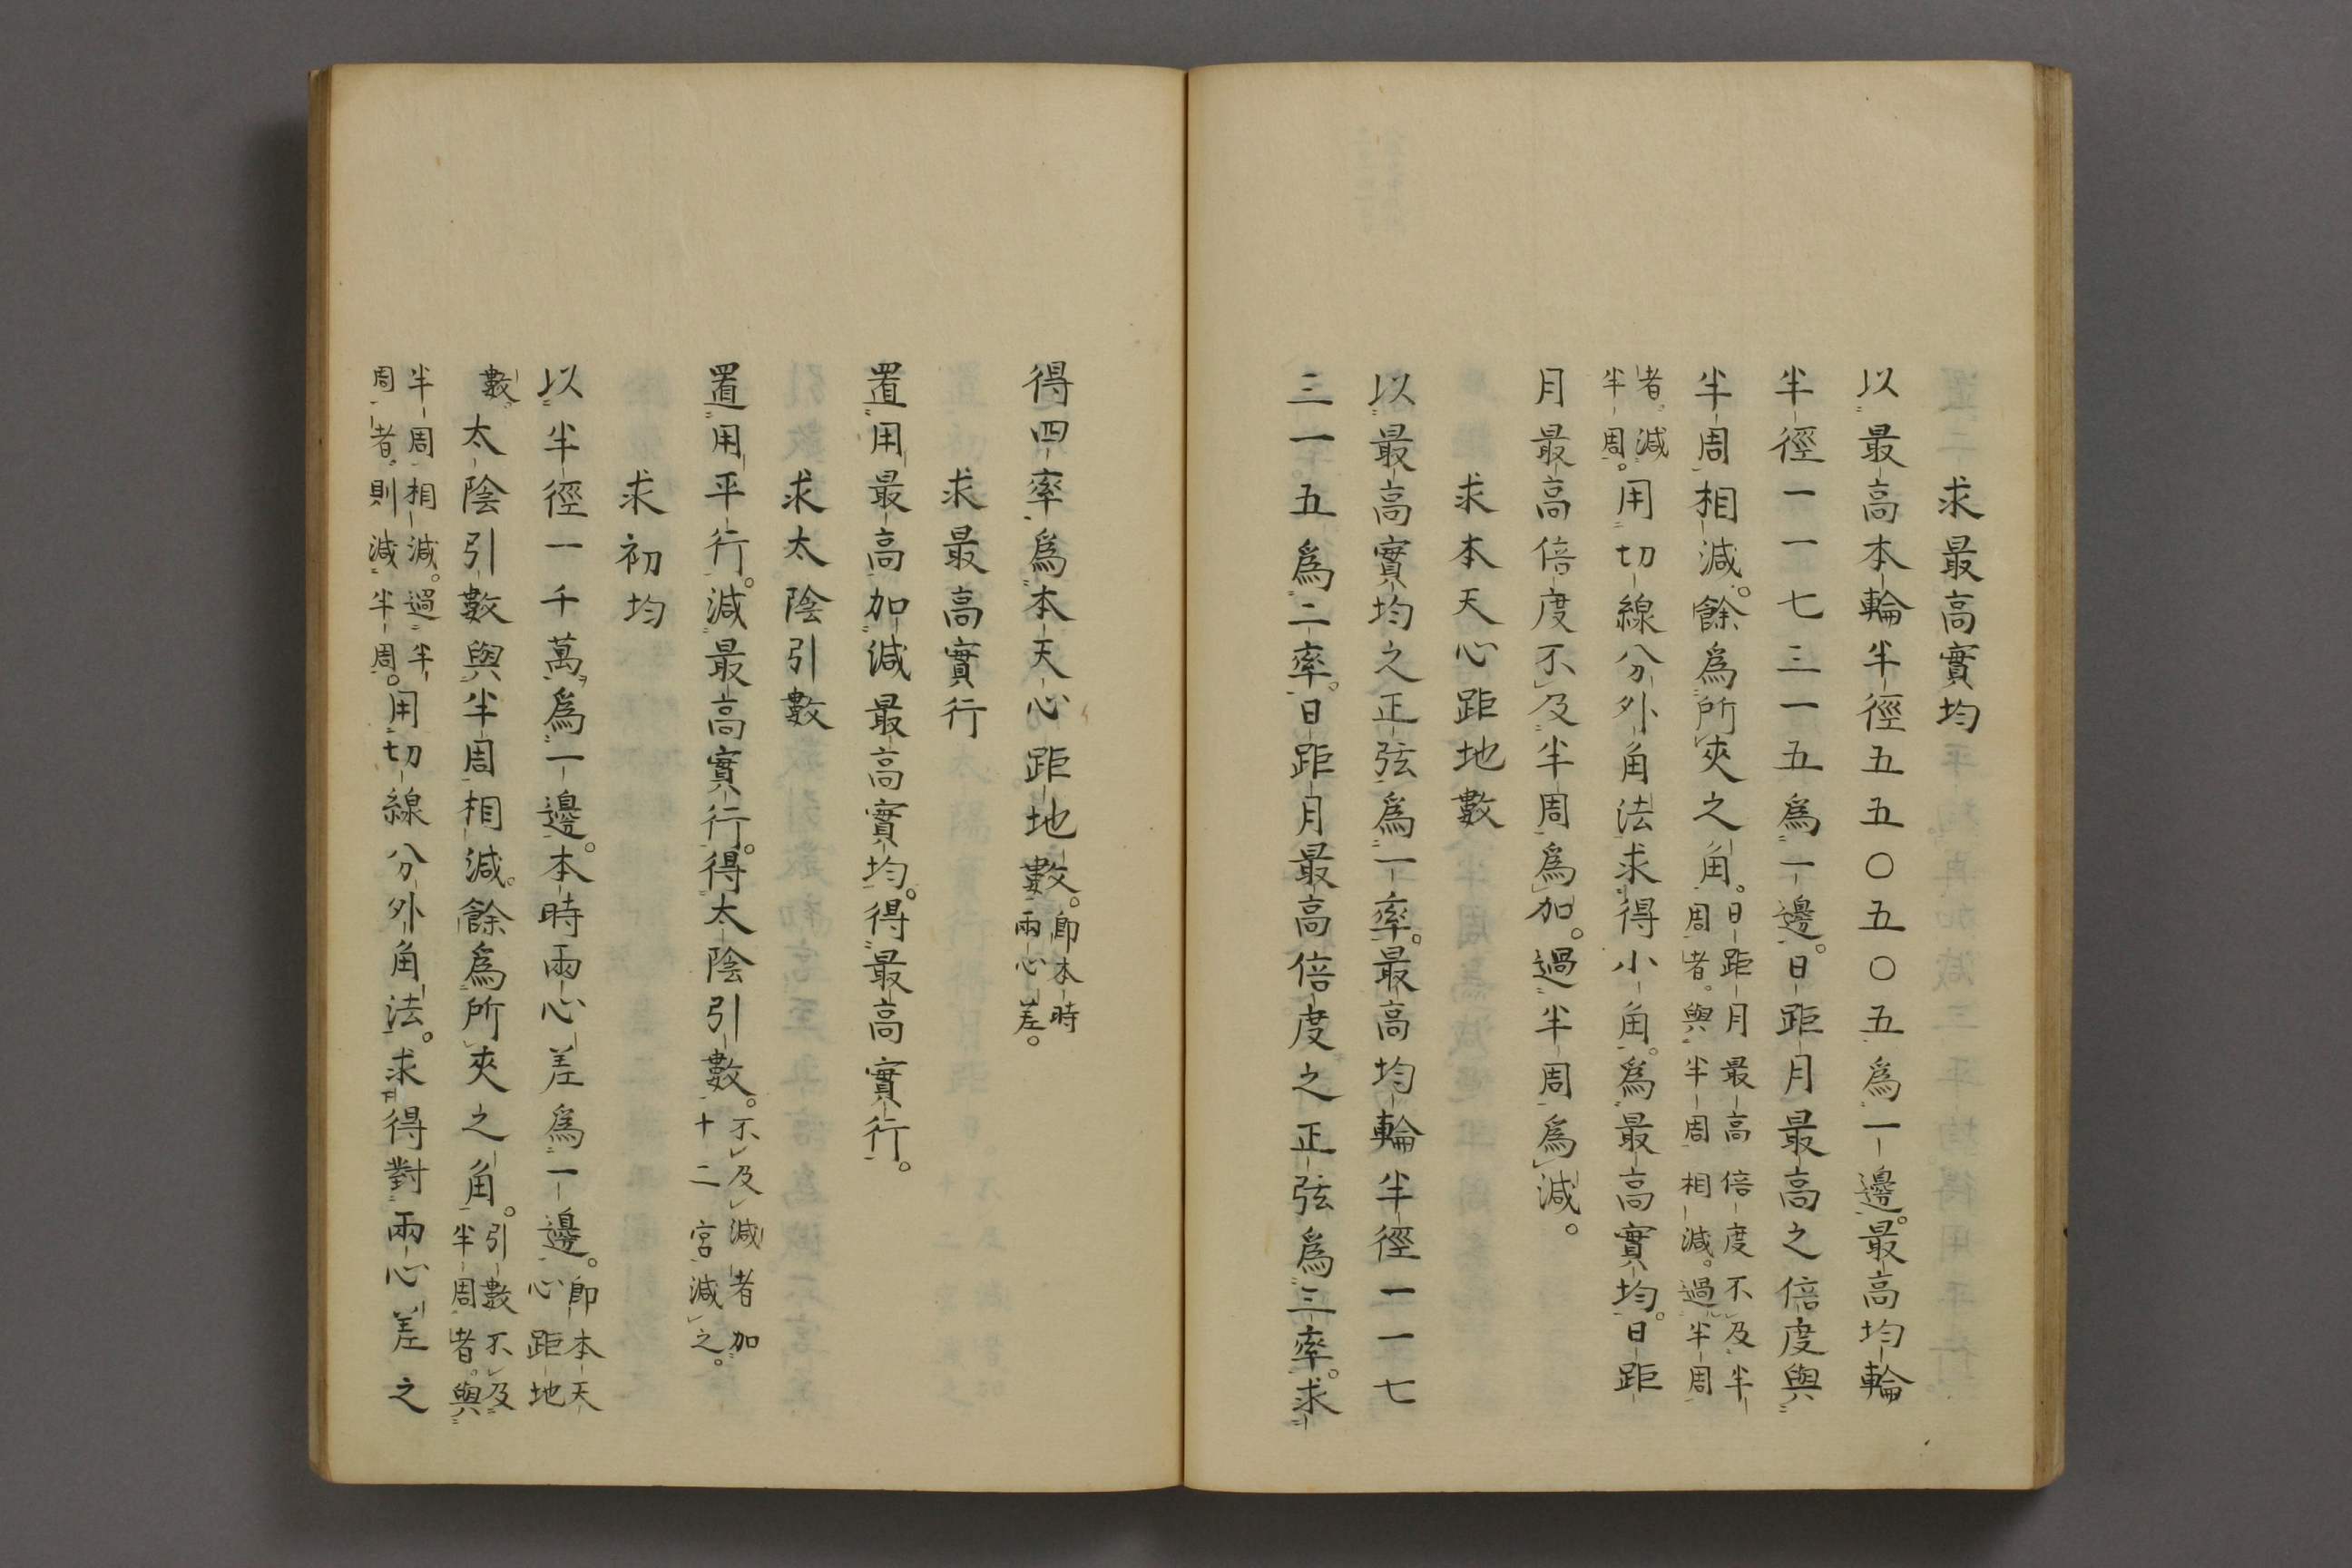 求最高實均
以最高本輪半徑五五〇五〇五爲一邊。最高均輪
半徑一一七三一五爲一邊。日距月最高之倍度與
半周相減。餘爲所夾之角。日距月最高倍度不及半
周者。與半周相減。過半周
者。減
半周。用切線分外角法求得小角。爲最高實均。日距
月最高倍度不及半周爲加。過半周爲減。
求本天心距地數
以最高實均之正弦爲一率。最高均輪半徑一一七
三一五爲二率。日距月最高倍度之正弦爲三率。求
得四率爲本天心距地數。卽本時
兩心差。
求最高實行
置用最高加減最高實均。得最高實行。
求太陰引數
置用平行。減最高實行。得太陰引數。不及減者加
十二宮減之。
求初均
以半徑一千萬爲一邊。本時兩心差爲一邊。卽本天
心距地
數太陰引數與半周相減。餘爲所夾之角。引數不及
半周者。與
半周相減。過半
周者。則減半周。用切線分外角法。求得對兩心差之